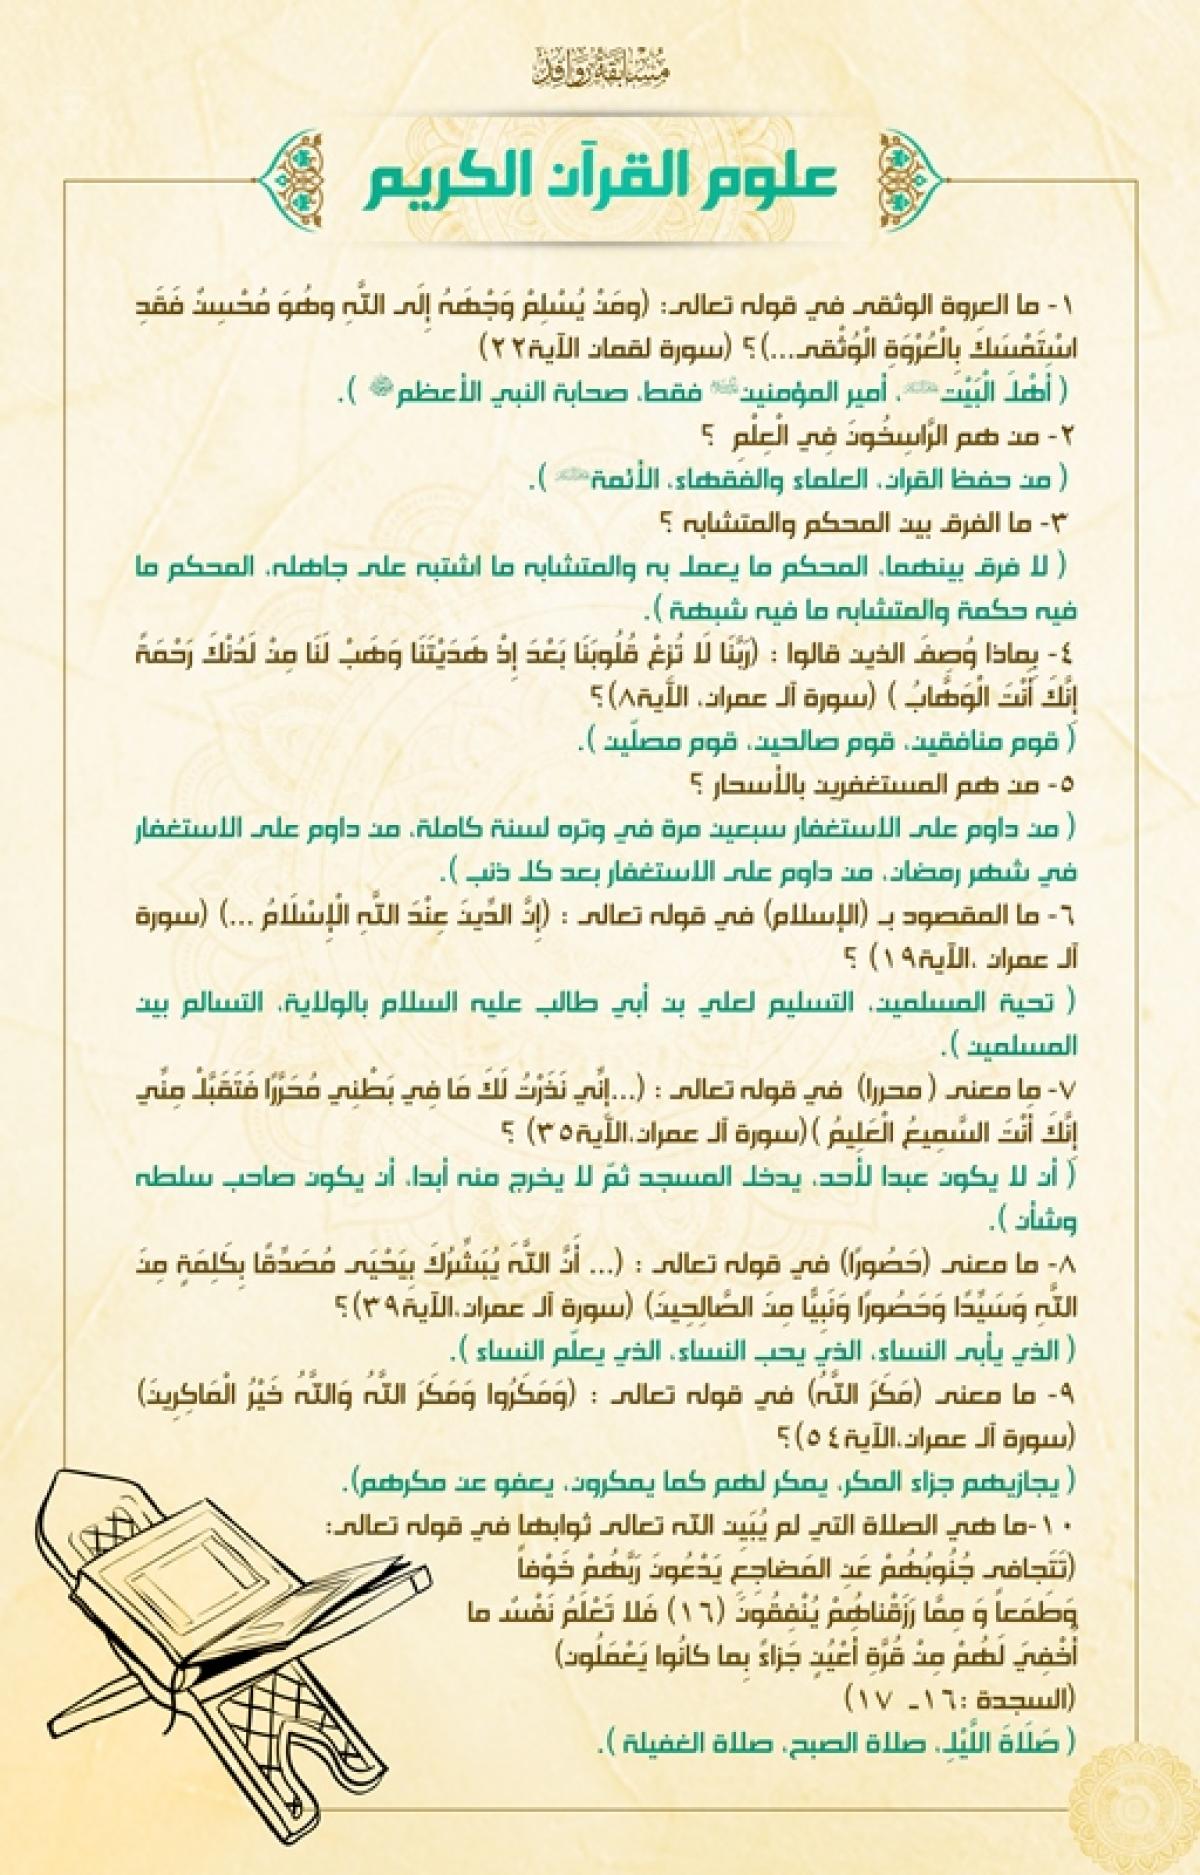 مسابقة روافد
علوم القرآن الكريم
١- ما العروة الوثقى في قوله تعالى: (ومَنْ يُسْلِمْ وَجْهَهُ إِلَى اللَّهِ وهُوَ مُحْسِنٌ فَقَدِ
اسْتَمْسَكَ بِالْعُرْوَةِ الْوُثْقى...)؟ (سورة لقمان الآية٢٢)
( أَهْلَ الْبَيْت، أمير المؤمنين فقط، صحابة النبي الأعظم ).
٢- من هم الرَّاسِخُونَ فِي الْعِلْمِ ؟
( من حفظ القران، العلماء والفقهاء، الأئمة ).
٣- ما الفرق بين المحكم والمتشابه ؟
( لا فرق بينهما، المحكم ما يعمل به والمتشابه ما اشتبه على جاهله، المحكم ما
فيه حكمة والمتشابه ما فيه شبهة ).
٤- بماذا وُصِفَ الذين قالوا : (رَبَّنَا لَا تُزِغْ قُلُوبَنَا بَعْدَ إِذْ هَدَيْتَنَا وَهَبْ لَنَا مِنْ لَدُنْكَ رَحْمَةً
إِنَّكَ أَنْتَ الْوَهَّابُ ) (سورة آل عمران، الآية٨)؟
( قوم منافقين، قوم صالحين، قوم مصلّين ).
٥- من هم المستغفرين بالأسحار ؟
( من داوم على الاستغفار سبعين مرة في وتره لسنة كاملة، من داوم على الاستغفار
في شهر رمضان، من داوم على الاستغفار بعد كل ذنب ).
٦- ما المقصود بـ (الإسلام) في قوله تعالى : (إِنَّ الدِّينَ عِنْدَ اللَّهِ الْإِسْلَامُ ...) (سورة
آل عمران ،الآية١٩) ؟
( تحية المسلمين، التسليم لعلي بن أبي طالب عليه السلام بالولاية، التسالم بين
المسلمين ).
٧- ما معنى ( محررا) في قوله تعالى : (...إِنِّي نَذَرْتُ لَكَ مَا فِي بَطْنِي مُحَرَّرًا فَتَقَبَّلْ مِنِّي
إِنَّكَ أَنْتَ السَّمِيعُ الْعَلِيمُ )(سورة آل عمران،الآية٣٥) ؟
( أن لا يكون عبدا لأحد، يدخل المسجد ثمّ لا يخرج منه أبدا، أن يكون صاحب سلطه
وشأن ).
٨- ما معنى (حَصُورًا) في قوله تعالى : (... أَنَّ اللَّهَ يُبَشِّرُكَ بِيَحْيَى مُصَدِّقًا بِكَلِمَةٍ مِنَ
اللَّهِ وَسَيِّدًا وَحَصُورًا وَنَبِيًّا مِنَ الصَّالِحِينَ) (سورة آل عمران،الآية٣٩)؟
( الذي يأبى النساء، الذي يحب النساء، الذي يعلّم النساء ).
٩- ما معنى (مَكَرَ اللَّهُ) في قوله تعالى : (وَمَكَرُوا وَمَكَرَ اللَّهُ وَاللَّهُ خَيْرُ الْمَاكِرِينَ)
(سورة آل عمران،الآية٥٤)؟
( يجازيهم جزاء المكر، يمكر لهم كما يمكرون، يعفو عن مكرهم).
١٠-ما هي الصلاة التي لم يُبَيِن اللّه تعالى ثوابها في قوله تعالى:
(تَتَجافى جُنُوبُهُمْ عَنِ المَضاجِعِ يَدْعُونَ رَبَّهُمْ خَوْفاً
وَطَمَعاً وَ مِمَّا رَزَقْناهُمْ يُنْفِقُونَ (١٦) فَلا تَعْلَمُ نَفْسٌ ما
أُخْفِيَ لَهُمْ مِنْ قُرَّةِ أَعْيُنٍ جَزاءً بِما كانُوا يَعْمَلُون)
(السجدة :١٦ـ ١٧)
( صَلَاةَ اللَّيْلِ، صلاة الصبح، صلاة الغفيلة ).